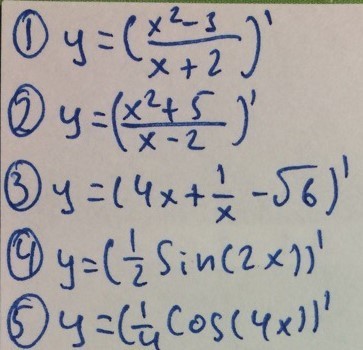 ① y=(x²-3/x+2)'
② y=(x²+5/x-2)'
③ y=(4x+1/x-√6)'
④ y=(1/2 Sin(2x))'
⑤ y=(1/4 Cos(4x))'